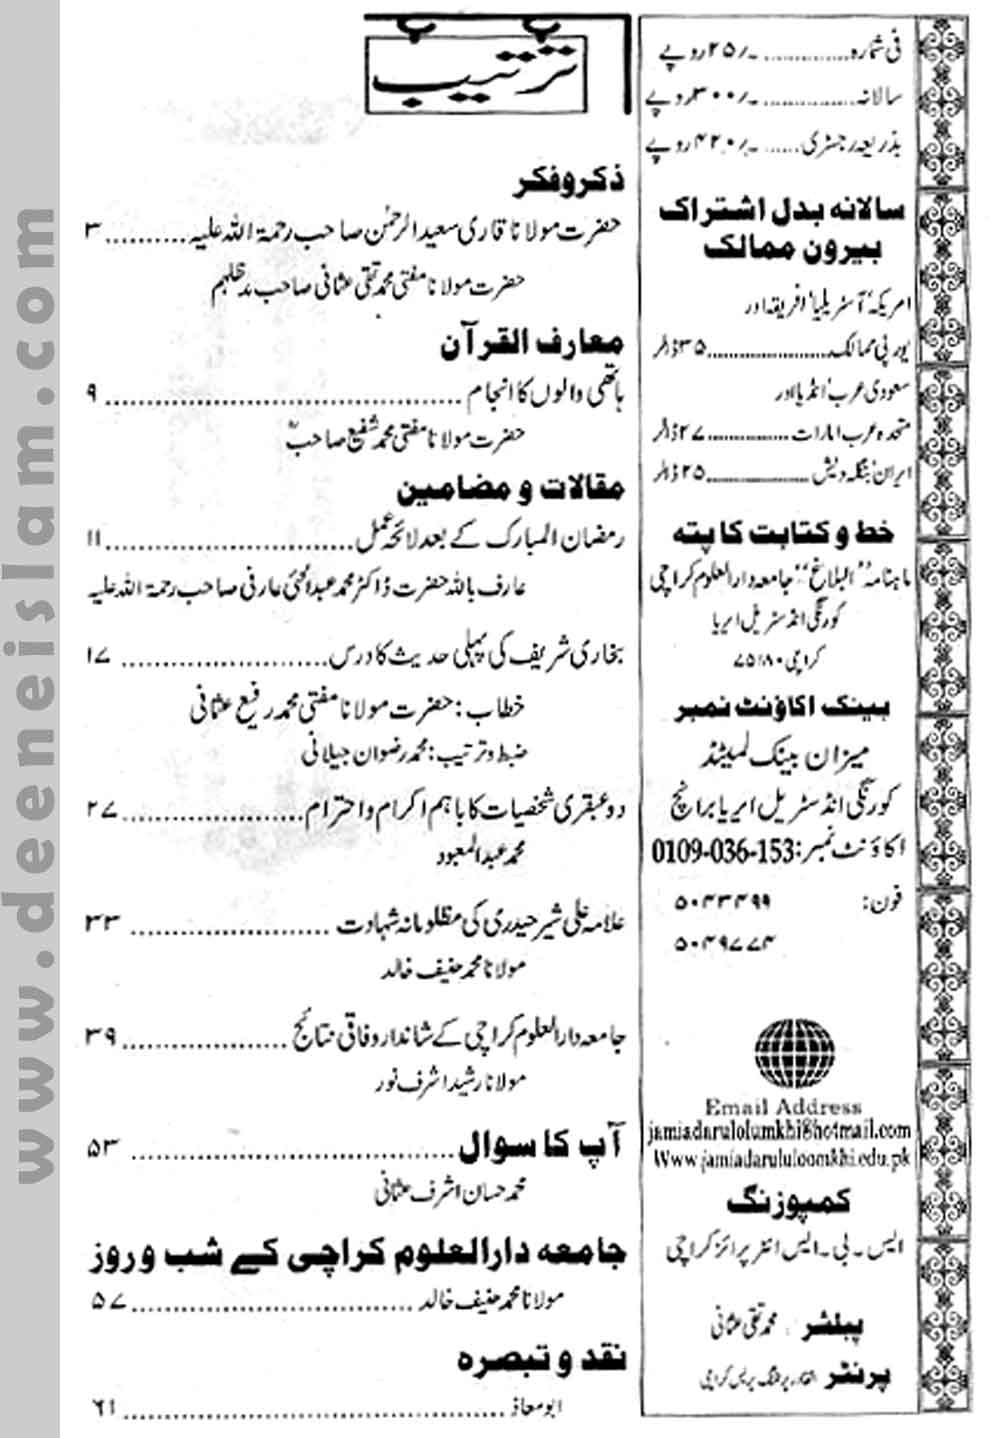 ترتیب
ذکروفکر
حضرت مولانا قاری سعید الرحمٰن صاحب رحمۃ اللہ علیہ .......... ۳
حضرت مولانا مفتی محمد تقی عثمانی صاحب مدظلہم
معارف القرآن
ہاتھی والوں کا انجام .......... ۹
حضرت مولانا مفتی محمد شفیع صاحبؒ
مقالات و مضامین
رمضان المبارک کے بعد لائحہ عمل .......... ۱۱
عارف باللہ حضرت ڈاکٹر محمد عبدالحئی عارفی صاحب رحمۃ اللہ علیہ
بخاری شریف کی پہلی حدیث کا درس .......... ۱۷
خطاب : حضرت مولانا مفتی محمد رفیع عثمانی
ضبط و ترتیب : محمد رضوان جیلانی
دو عبقری شخصیات کا باہم اکرام و احترام .......... ۲۷
محمد عبدالمعبود
علامہ علی شیر حیدری کی مظلومانہ شہادت .......... ۳۳
مولانا محمد حنیف خالد
جامعہ دارالعلوم کراچی کے شاندار وفاقی نتائج .......... ۳۹
مولانا رشید اشرف نور
آپ کا سوال .......... ۵۳
محمد حسان اشرف عثمانی
جامعہ دارالعلوم کراچی کے شب و روز
مولانا محمد حنیف خالد .......... ۵۷
نقد و تبصرہ
ابو معاذ .......... ۶۱
فی شمارہ .......... ۔/۲۵ روپے
سالانہ .......... ۔/۳۰۰ روپے
بذریعہ رجسٹری .......... ۔/۴۲۰ روپے
سالانہ بدل اشتراک
بیرون ممالک
امریکہ، آسٹریلیا، افریقہ اور
یورپی ممالک .......... ۳۵ ڈالر
سعودی عرب، انڈیا اور
متحدہ عرب امارات .......... ۲۷ ڈالر
ایران، بنگلہ دیش .......... ۲۵ ڈالر
خط و کتابت کا پتہ
ماہنامہ "البلاغ" جامعہ دارالعلوم کراچی
کورنگی انڈسٹریل ایریا
کراچی ۷۵۱۸۰
بینک اکاؤنٹ نمبر
میزان بینک لمیٹڈ
کورنگی انڈسٹریل ایریا برانچ
اکاؤنٹ نمبر : 0109-036-153
فون: ۵۰۴۳۴۹۹
۵۰۴۹۷۷۴
Email Address
jamiadarulolumkhi@hotmail.com
Www.jamiadarululoomkhi.edu.pk
کمپوزنگ
ایس ۔ بی ۔ ایس انٹرپرائز کراچی
پبلشر : محمد تقی عثمانی
پرنٹر القادر پرنٹنگ پریس کراچی
www.deeneislam.com